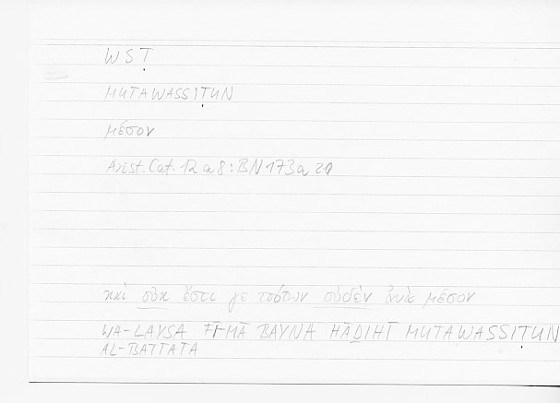 WSṬ
MUTAWASSIṬUN
μέσον
Arist. Cat. 12 a 8 : BN 173 a 21
καὶ οὐκ ἔστι γε τούτων οὐδὲν ἀνὰ μέσον
WA-LAYSA FĪ-MĀ BAYNA HĀḎIHĪ MUTAWASSIṬUN
AL-BATTATA